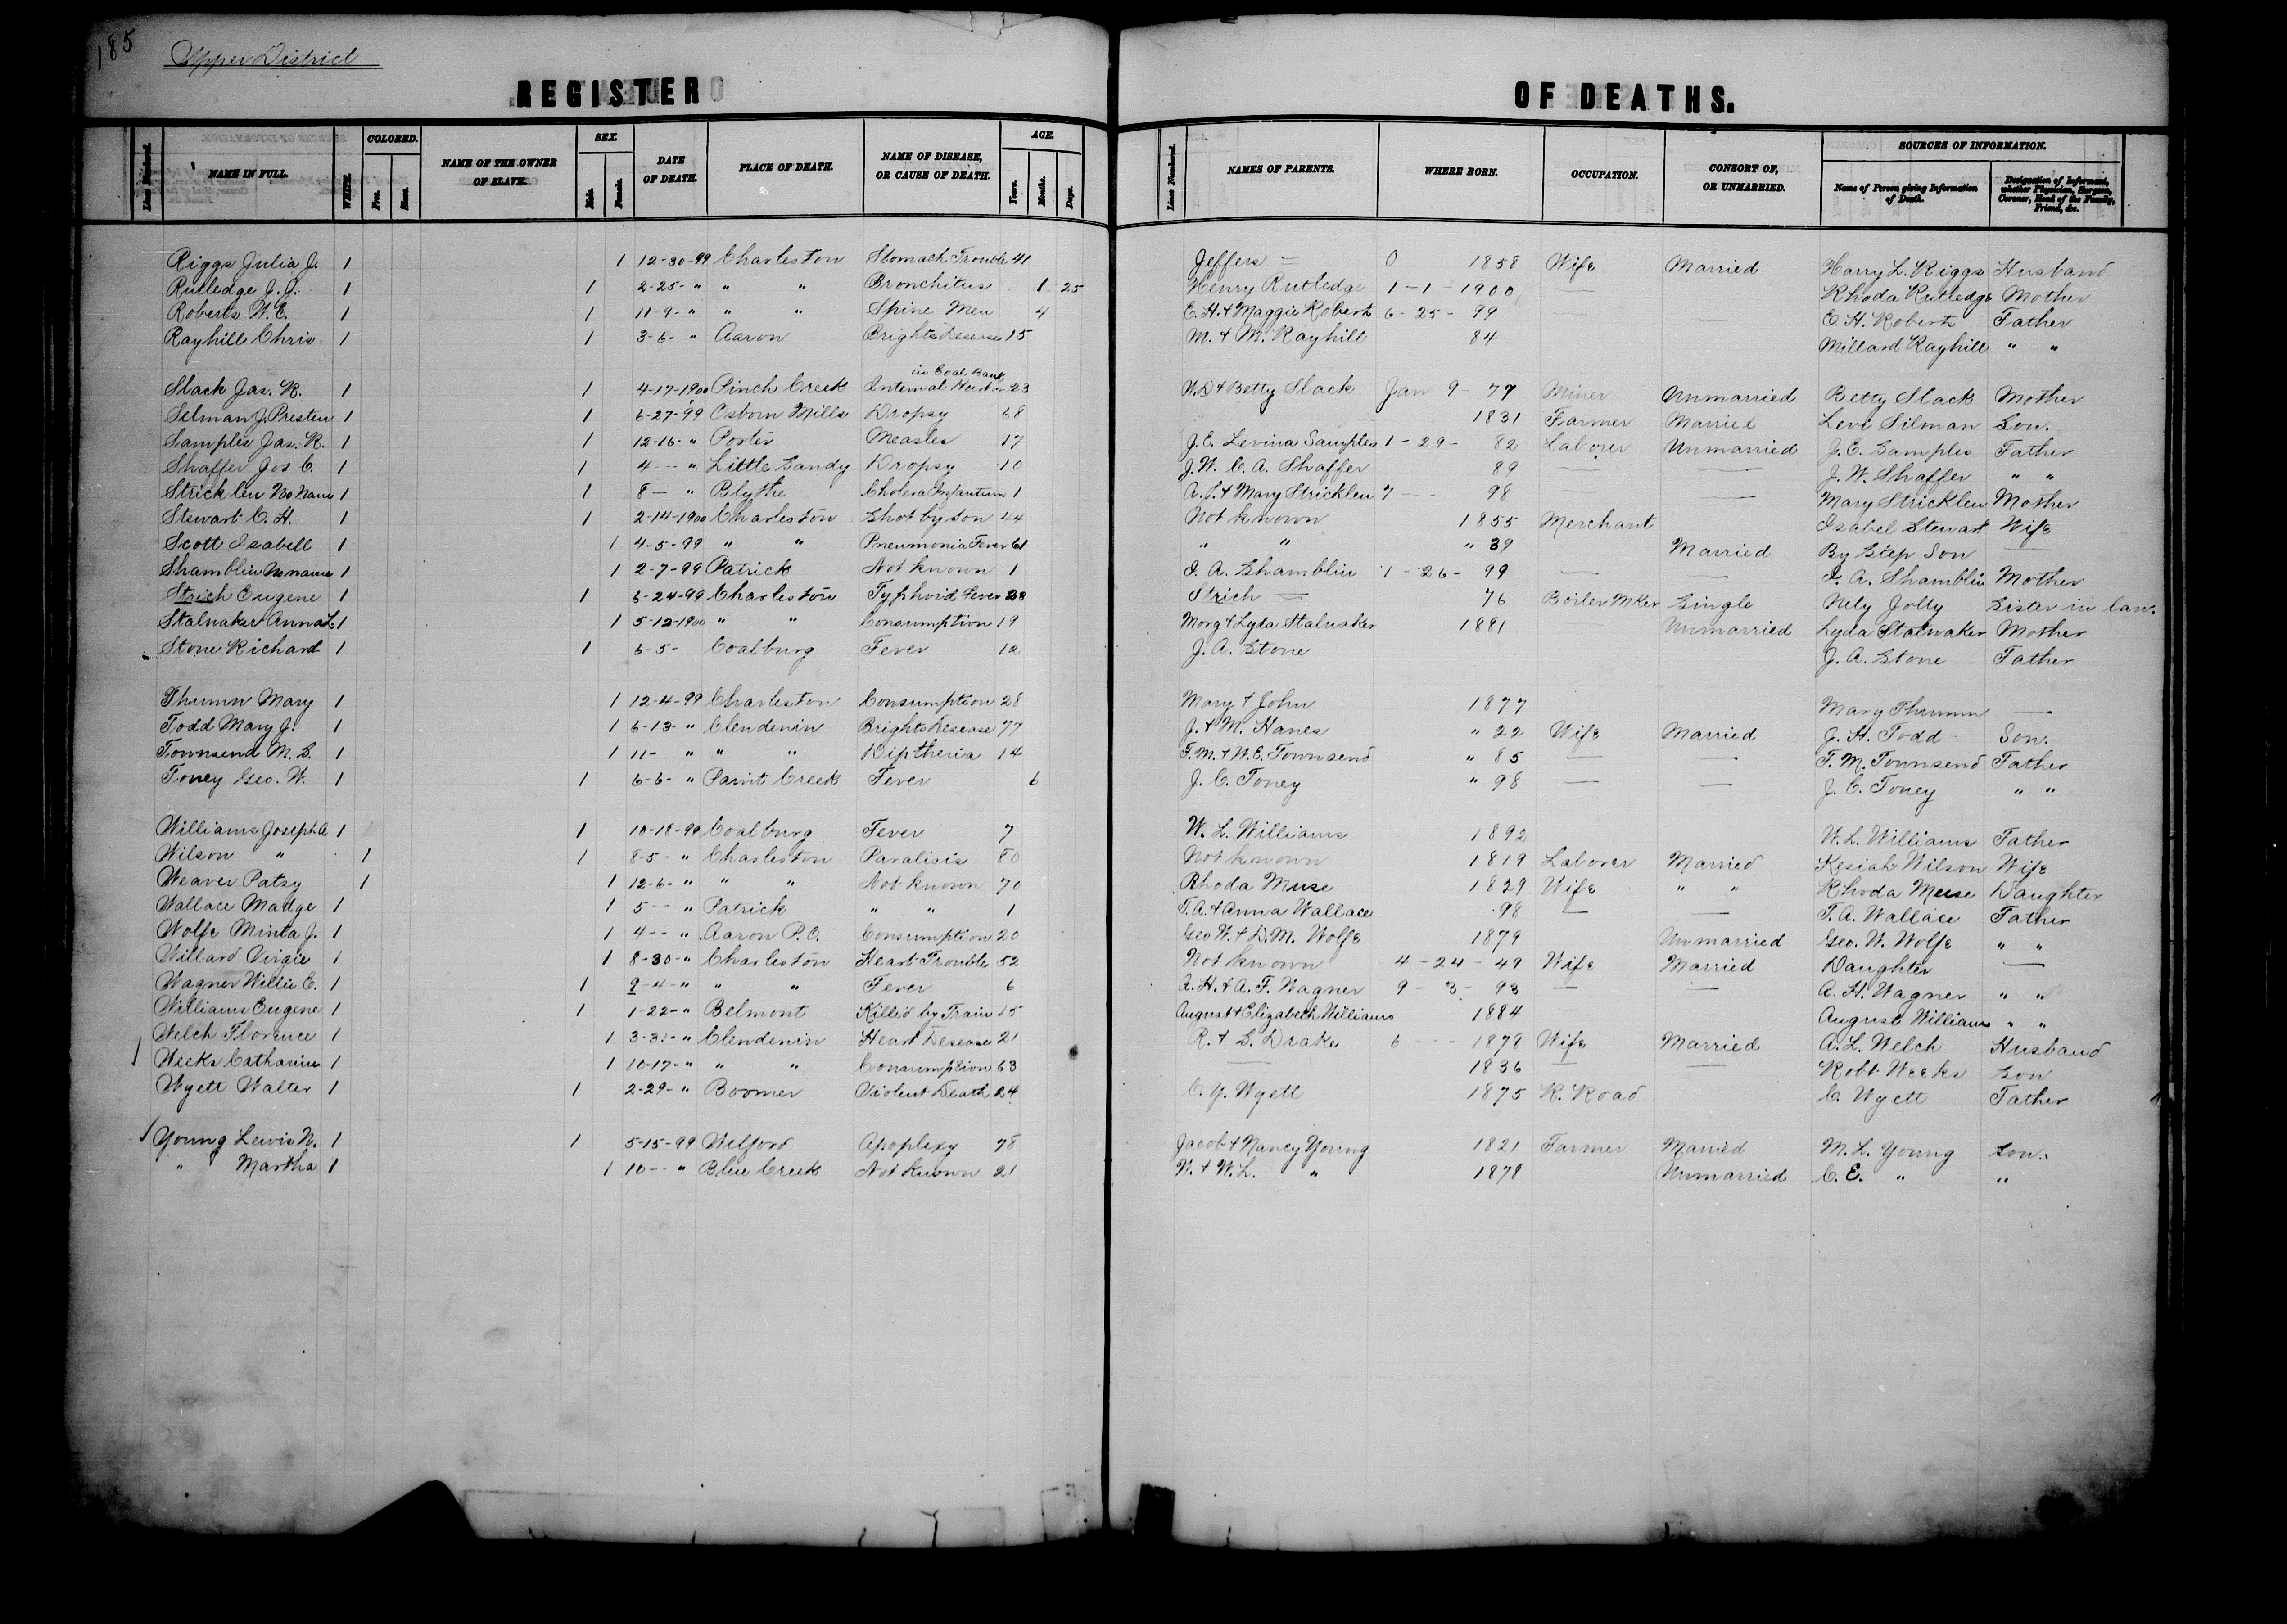 185
Upper District
REGISTER OF DEATHS.
Lines Numbered. NAME IN FULL. WHITE. COLORED. Free. Slave. NAME OF THE OWNER OF SLAVE. SEX. Male. Female. DATE OF DEATH. PLACE OF DEATH. NAME OF DISEASE, OR CAUSE OF DEATH. AGE. Years. Months. Days. Lines Numbered. NAMES OF PARENTS. WHERE BORN. OCCUPATION. CONSORT OF, OR UNMARRIED. SOURCES OF INFORMATION. Name of Person giving Information of Death. Designation of Informant, whether Physician, Surgeon, Coroner, Head of the Family, Friend, &c.
Riggs Julia J. 1 1 12-30-99 Charleston Stomach Trouble 41 Jeffers — 0 1858 Wife Married Harry L. Riggs Husband
Rutledge J.J. 1 1 2-25- " " " Bronchitus 1 25 Henry Rutledge 1-1-1900 — Rhoda Rutledge Mother
Roberts W.E. 1 1 11-9- " " " Spine Men 4 E.H. & Maggie Roberts 6-25-99 — — E.H. Roberts Father
Rayhill Chris 1 1 3-6- " Aaron Brights Desease 15 M. & M. Rayhill 84 Millard Rayhill " "
Slack Jas. R. 1 1 4-17-1900 Pinch Creek Internal Hurt in Coal Bank 23 & Betty Slack Jan 9-77 Miner Unmarried Betty Slack Mother
Silman J. Presten 1 1 6-27-99 Osborn Mills Dropsy 68 1831 Farmer Married Levi Silman Son.
Samples Jas. R. 1 1 12-16- " Porter Measles 17 J.E. Levina Samples 1-29-82 Laborer Unmarried J.E. Samples Father
Shaffer Jos C. 1 1 4-- " Little Sandy Dropsy 10 J.W. C.A. Shaffer 89 — — J.W. Shaffer " "
Stricklen No Name 1 1 8- " Blythe Cholera Infantum 1 A.J. & Mary Stricklen 7-- 98 — — Mary Stricklen Mother
Stewart C.H. 1 1 2-14-1900 Charleston Shot by son 44 Not known 1855 Merchant Isabel Stewart Wife
Scott Isabell 1 1 4-5-99 " " Pneumonia Fever 61 " " " 39 Married By Step Son —
Shamblin No name 1 1 2-7-99 Patrick Not known 1 I.A. Shamblin 1-26-99 — — I.A. Shamblin Mother
Strich Eugene 1 1 6-24-99 Charleston Typhoid Fever 23 Strich — 76 Boiler Mker Single Nely Jolly Sister in law.
Stalnaker Anna L. 1 1 5-12-1900 " " Consumption 19 Morg & Lyda Stalnaker 1881 — Unmarried Lyda Stalnaker Mother
Stone Richard 1 1 6-5- Coalburg Fever 12 J.A. Stone J.A. Stone Father
Thrumn Mary 1 1 12-4-99 Charleston Consumption 28 Mary & John 1877 Mary Thrumn —
Todd Mary J. 1 1 6-13- " Clendenin Brights Desease 77 J. & M. Hanes " 22 Wife Married J.H. Todd Son.
Townsend M.S. 1 1 11- " " " Diptheria 14 F.M. & N.E. Townsend " 85 — — F.M. Townsend Father
Toney Geo. W. 1 1 6-6- " Paint Creek Fever 6 J.C. Toney " 98 — — J.C. Toney " "
Williams Joseph A 1 1 10-18-99 Coalburg Fever 7 W.L. Williams 1892 W.L. Williams Father
Wilson " 1 1 8-5- " Charleston Paralisis 80 Not known 1819 Laborer Married Kesiah Wilson Wife
Weaver Patsy 1 1 12-6- " " " Not known 70 Rhoda Muse 1829 Wife " " Rhoda Meuse Daughter
Wallace Madge 1 1 5-- " Patrick " " 1 T.A. & Anna Wallace 98 — — T.A. Wallace Father
Wolfe Minta J. 1 1 4-- " Aaron P.O. Consumption 20 Geo W. & D.M. Wolfe 1879 Unmarried Geo. W. Wolfe " "
Willard Virgie 1 1 8-30- " Charleston Heart Trouble 52 Not known 4-24-49 Wife Married Daughter —
Wagner Willie E. 1 1 9-4- " " " Fever 6 A.H. & A.F. Wagner 9-3-93 — — A.H. Wagner " "
Williams Eugene 1 1 1-22- " Belmont Killed by Train 15 August & Elizabeth Williams 1884 August Williams " "
Welch Florence 1 1 3-31- " Clendenin Heart Desease 21 R. & S. Drake 6--- 1878 Wife Married A.L. Welch Husband
Weeks Catharine 1 1 10-17- " " " Consumption 63 — 1836 — — Robt Weeks Son
Wyett Walter 1 1 2-29- " Boomer Violent Death 24 C.Y. Wyett 1875 R. Road C. Wyett Father
Young Lewis N. 1 1 5-15-99 Wilford Apoplexy 78 Jacob & Nancy Young 1821 Farmer Married M.L. Young Son.
" Martha 1 1 10-- " Blue Creek Not Known 21 N. & W.L. " 1878 Unmarried C.E. " "